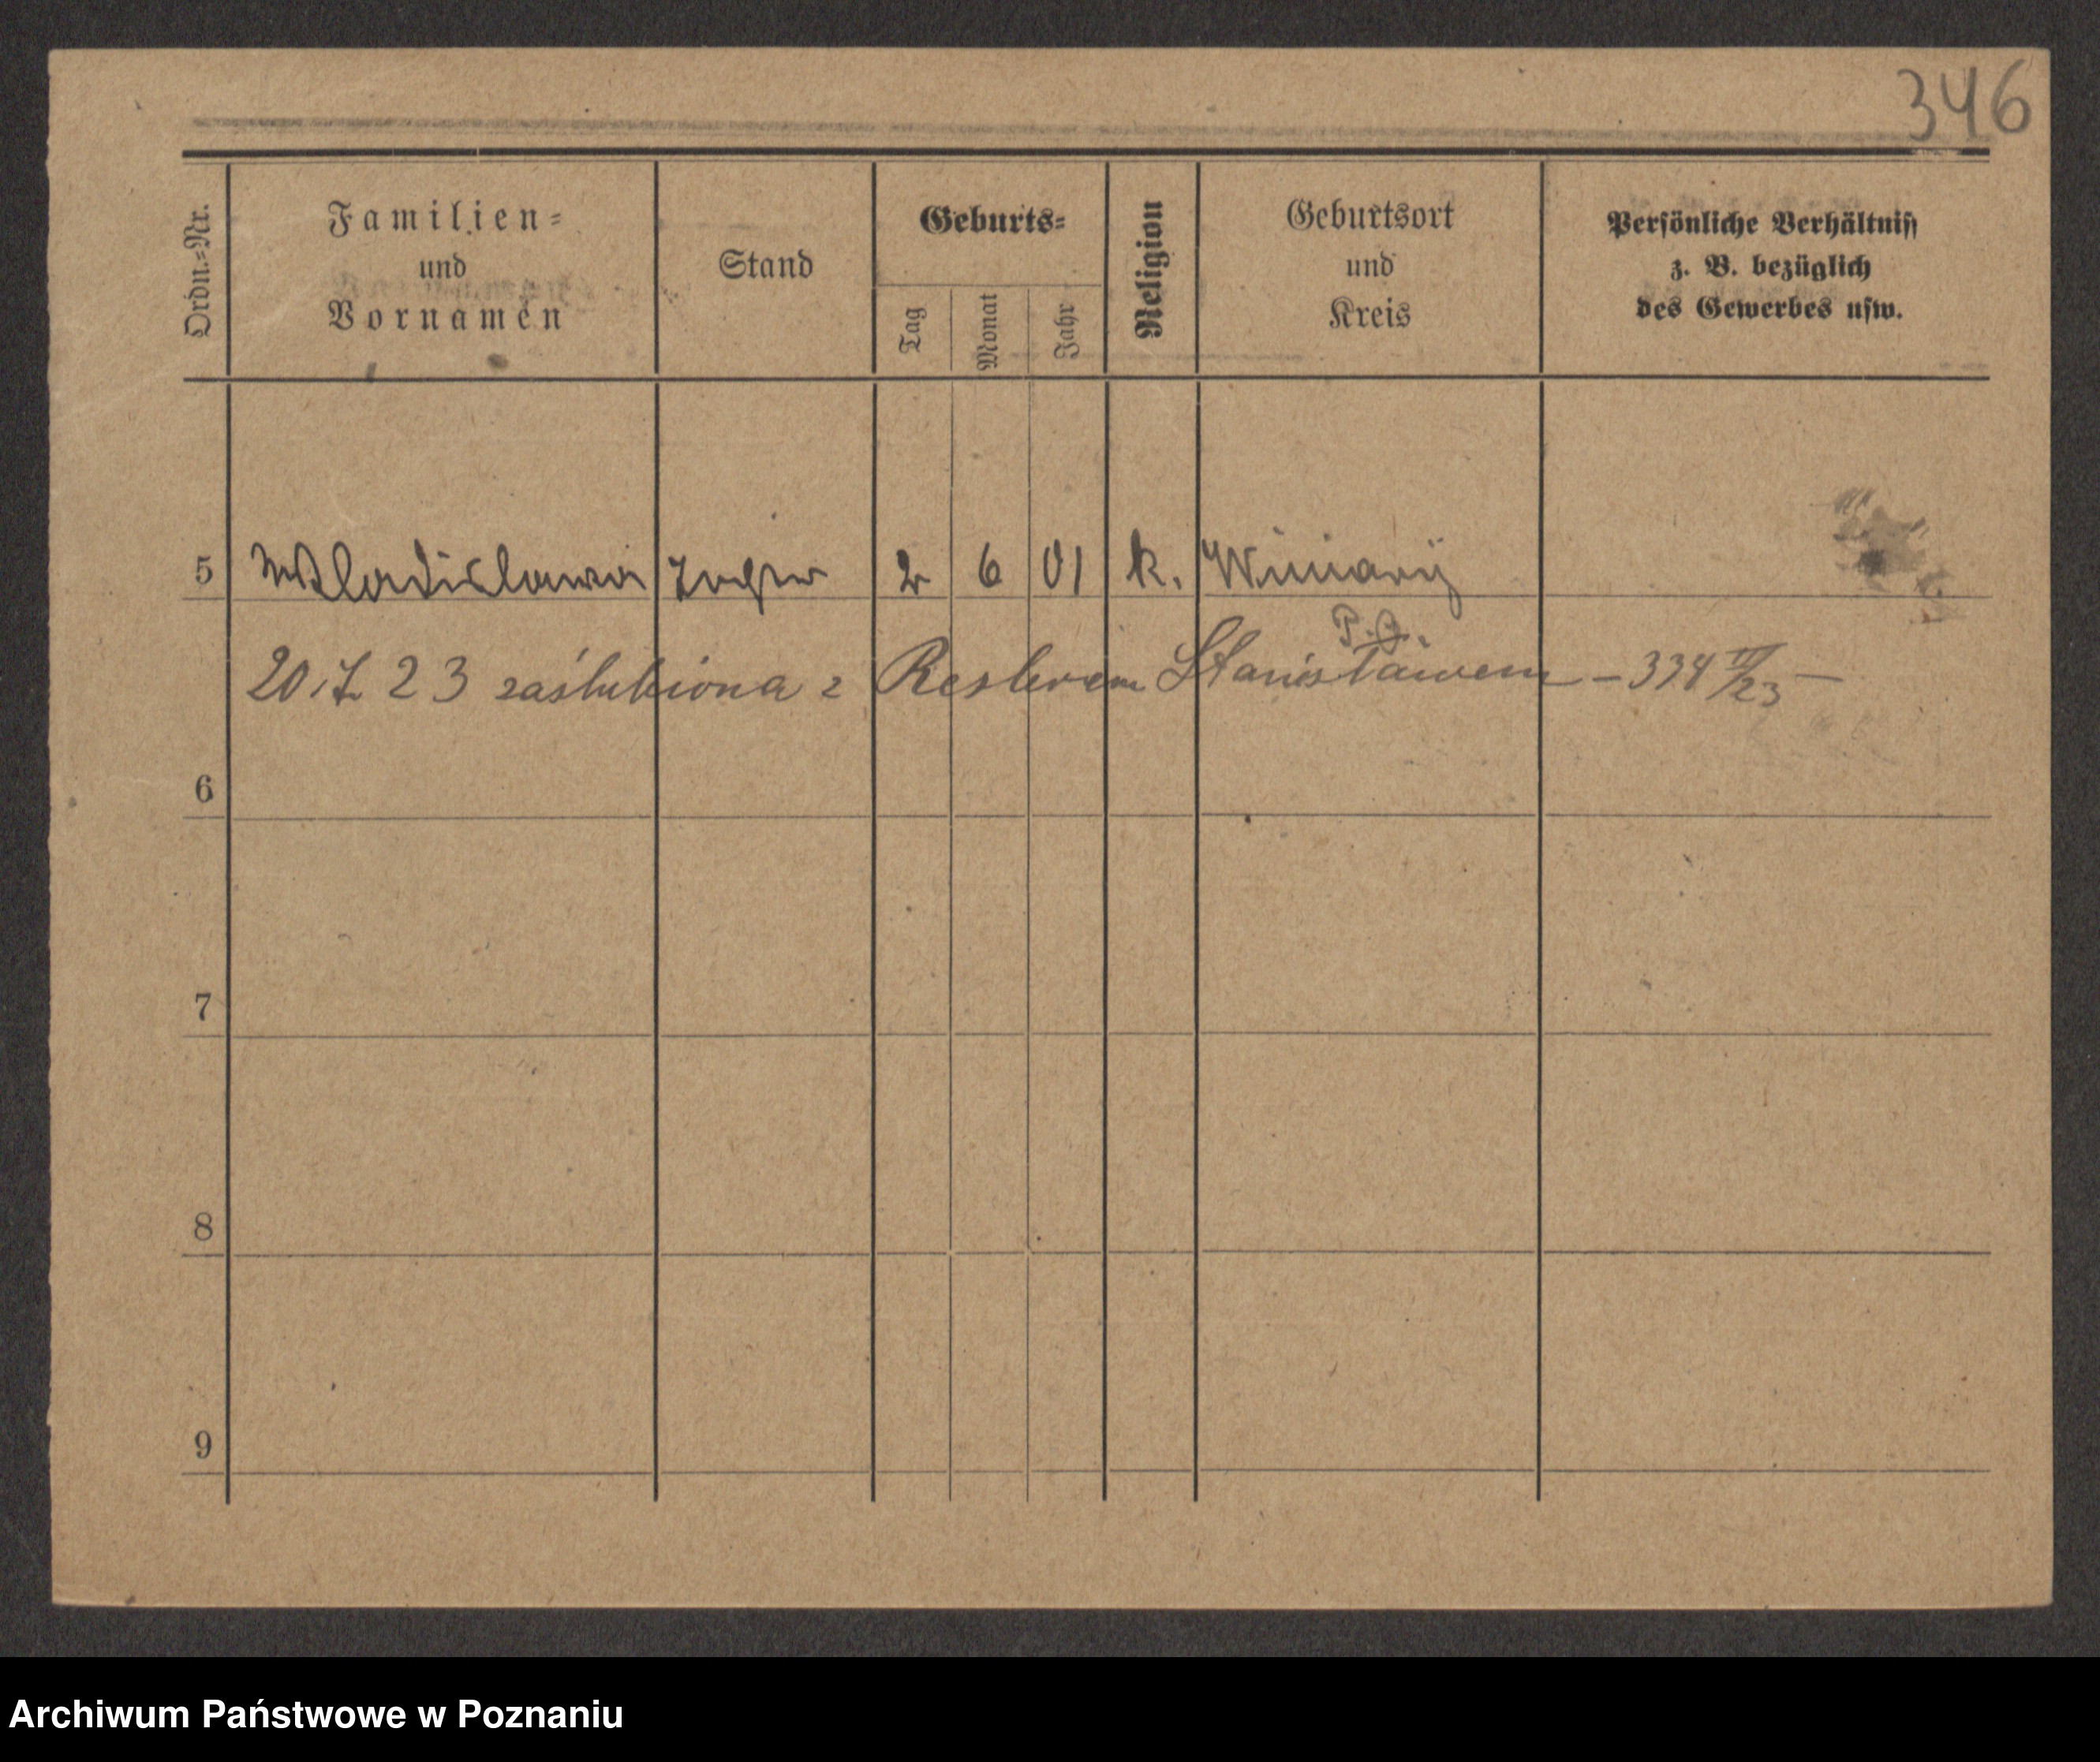 346
Ordn.-Nr.
Familien-
und
Vornamen
Stand
Geburts-
Tag
Monat
Jahr
Religion
Geburtsort
und
Kreis
Persönliche Verhältniss
z. B. bezüglich
des Gewerbes usw.
5 Wladislawa 2 6 01 k. Winiary
P.O.
20.7. 23 zaślubiona z Reslerem Stanisławem – 334 II/23 –
6
7
8
9
Archiwum Państwowe w Poznaniu